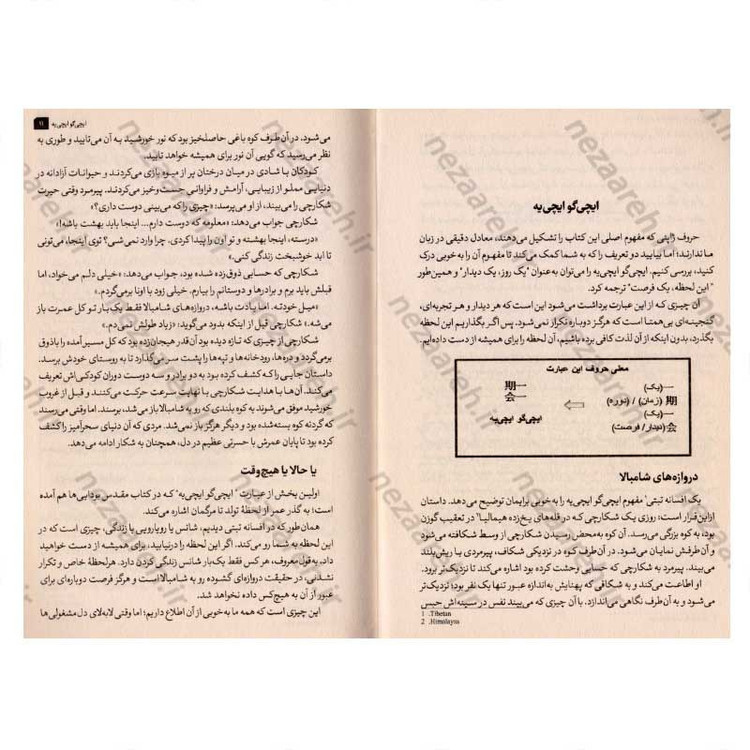 ایچی‌گو ایچی‌یه
حروف ژاپنی که مفهوم اصلی این کتاب را تشکیل می‌دهند، معادل دقیقی در زبان
ما ندارند؛ اما بیایید دو تعریف را که به شما کمک می‌کند تا مفهوم آن را به خوبی درک
کنید، بررسی کنیم. ایچی‌گو ایچی‌یه را می‌توان به‌عنوان "یک روز، یک دیدار" و همین‌طور
"این لحظه، یک فرصت" ترجمه کرد.
آن چیزی که از این عبارت برداشت می‌شود این است که هر دیدار و هر تجربه‌ای،
گنجینه‌ای بی‌همتا است که هرگز دوباره تکرار نمی‌شود. پس اگر بگذاریم این لحظه
بگذرد، بدون اینکه از آن لذت کافی برده باشیم، آن لحظه را برای همیشه از دست داده‌ایم.
معنی حروف این عبارت
一(یک)
期(زمان) / (دوره)
一(یک)
会(دیدار/ فرصت)
⇦
一期
一会
ایچی‌گو ایچی‌یه
دروازه‌های شامبالا
یک افسانه تبتی¹ مفهوم ایچی‌گو ایچی‌یه را به خوبی برایمان توضیح می‌دهد. داستان
ازاین قرار است؛ روزی یک شکارچی که در قله‌های یخ‌زده هیمالیا² در تعقیب گوزن
بود، به کوه بزرگی می‌رسد. آن کوه به‌محض رسیدن شکارچی از وسط شکافته می‌شود
و آن‌طرفش نمایان می‌شود. در آن‌طرف کوه در نزدیکی شکاف، پیرمردی با ریش بلند
می‌ایستد. پیرمرد به شکارچی که حسابی وحشت کرده بود اشاره می‌کند تا نزدیک‌تر برود.
او اطاعت می‌کند و به شکافی که پهنایش به‌اندازه عبور تنها یک نفر بود؛ نزدیک‌تر
می‌شود و به آن‌طرف نگاهی می‌اندازد. با آن چیزی که می‌بیند نفس در سینه‌اش حبس
1 .Tibetan
2 .Himalaysa
ایچی‌گو ایچی‌یه ۱۱
می‌شود. در آن طرف کوه باغی حاصلخیز بود که نور خورشید به آن می‌تابید و طوری به
نظر می‌رسید که گویی آن نور برای همیشه خواهد تابید.
کودکان با شادی در میان درختان پر از میوه بازی می‌کردند و حیوانات آزادانه در
دنیایی مملو از زیبایی، آرامش و فراوانی جست‌وخیز می‌کردند. پیرمرد وقتی حیرت
شکارچی را می‌بیند، از او می‌پرسد: «چیزی را که می‌بینی دوست داری؟»
شکارچی جواب می‌دهد: «معلومه که دوست دارم... اینجا باید بهشت باشه!»
«درسته، اینجا بهشته و تو اون را پیدا کردی. چرا وارد نمی شی؟ توی اینجا، می‌تونی
تا ابد خوشبخت زندگی کنی.»
شکارچی که حسابی ذوق‌زده شده بود، جواب می‌دهد: «خیلی دلم می‌خواد، اما
قبلش باید برم و برادرها و دوستانم را بیارم. خیلی زود با اونا برمی‌گردم.»
«میل خودته. اما یادت باشه، دروازه‌های شامبالا فقط یک‌بار تو کل عمرت باز
می‌شه.» شکارچی قبل از اینکه بدود می‌گوید: «زیاد طولش نمی‌دم.»
شکارچی از چیزی که تازه دیده بود آن‌قدر هیجان‌زده بود که کل مسیر آمده را باذوق
برمی‌گردد و دره‌ها، رودخانه‌ها و تپه‌ها را پشت سر می‌گذارد تا به روستای خودش برسد.
داستان جایی را که کشف کرده بود برای برادر و دو سه دوست دوران کودکی‌اش تعریف
می‌کند. آن‌ها با هدایت شکارچی با نهایت سرعت حرکت می‌کنند و قبل از غروب
خورشید موفق می‌شوند به کوه بلندی که رو به شامبالا باز می‌شد، برسند. اما وقتی می‌رسند
که گردنه کوه بسته‌شده بود و دیگر هرگز باز نمی‌شد. مردی که آن دنیای سحرآمیز را کشف
کرده بود تا پایان عمرش با حسرتی عظیم در دل، همچنان به شکار ادامه می‌دهد.
یا حالا یا هیچ‌وقت
اولین بخش از عبارت "ایچی‌گو ایچی‌یه" که در کتاب مقدس بودایی‌ها هم آمده
است؛ به گذر عمر از لحظهٔ تولد تا مرگمان اشاره می‌کند.
همان‌طور که در افسانه تبتی دیدیم، شانس یا رویارویی با زندگی، چیزی است که در
این لحظه به شما رو می‌کند. اگر این لحظه را درنیابید، برای همیشه از دست خواهید
داد، به‌قول‌معروف، هر کس فقط یک‌بار شانس زندگی کردن دارد. هرلحظهٔ خاص و تکرار
نشدنی، در حقیقت دروازه‌ای گشوده رو به شامبالا است و هرگز فرصت دوباره‌ای برای
عبور از آن به هیچ‌کس داده نخواهد شد.
این چیزی است که همه ما به‌خوبی از آن اطلاع داریم؛ اما وقتی لابه‌لای دل مشغولی‌ها
nezaareh.ir